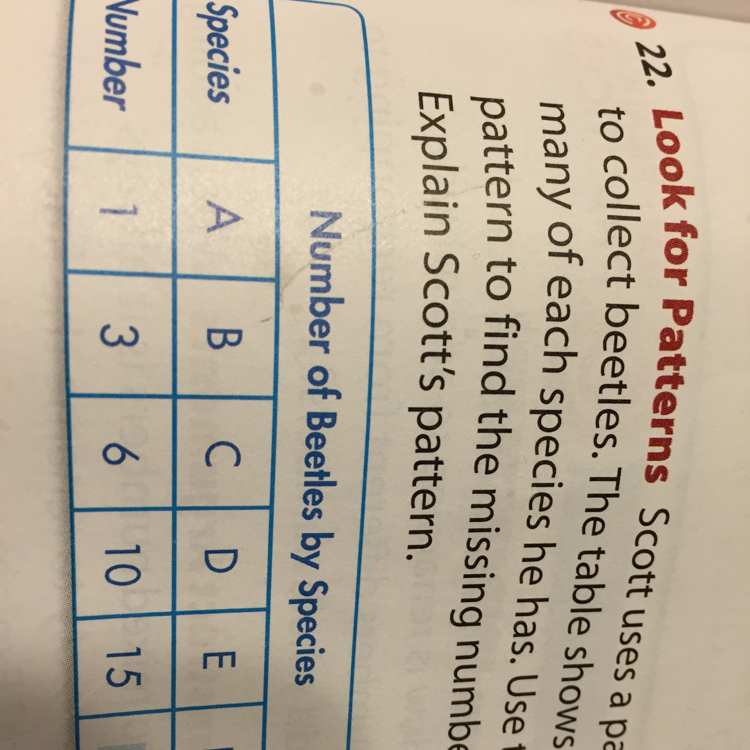 22. Look for Patterns Scott uses a
to collect beetles. The table shows
many of each species he has. Use
pattern to find the missing
Explain Scott's pattern.
Number of Beetles by Species
Species A B C D E
Number 1 3 6 10 15